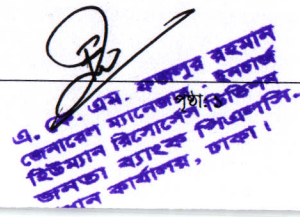 পৃষ্ঠা-১
এ. কে. এম. ফজলুর রহমান
জেনারেল ম্যানেজার- ইনচার্জ
হিউম্যান রিসোর্সেস ডিভিশন
জনতা ব্যাংক পিএলসি.
কার্যালয়, ঢাকা।